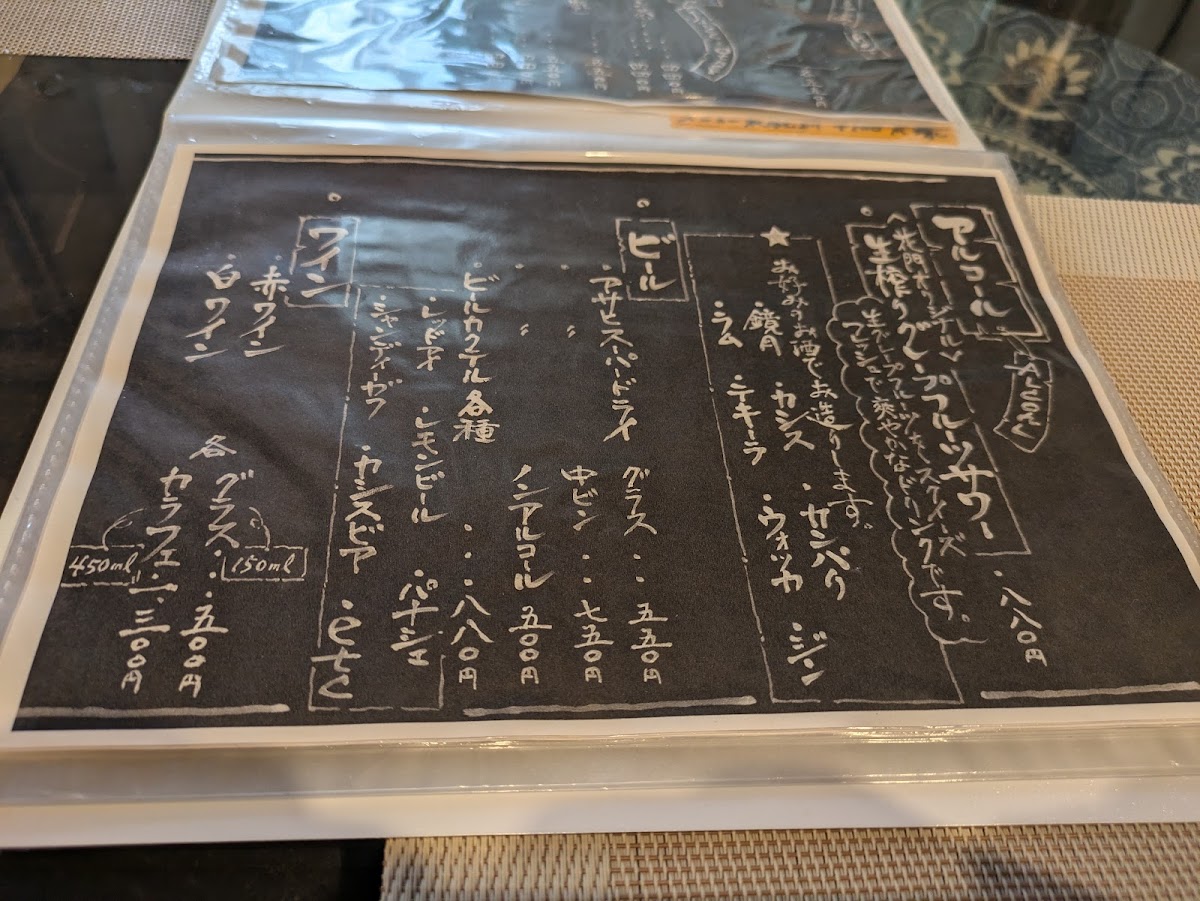 アルコール
ALCOHOL
オリジナル
生搾りグレープフルーツサワー ・八八〇円
生グレープフルーツをスクイーズ
フレッシュで爽やかなドリンクです。
★お好みのお酒でお造りします。
・鏡月 ・カシス ・カンパリ ジン
・ラム ・テキーラ ・ウォッカ
ビール
・アサヒスーパードライ グラス ・・五五〇円
・ 〃 中ビン ・・七五〇円
・ 〃 ノンアルコール 五〇〇円
ビールカクテル各種 ・・・八八〇円
・レッドアイ ・レモンビール ・パナシェ
・シャンディーガフ ・カシスビア ・etc
ワイン
・赤ワイン
・白ワイン
各 グラス ・・五〇〇円
150ml
カラフェ ・一、三〇〇円
450ml